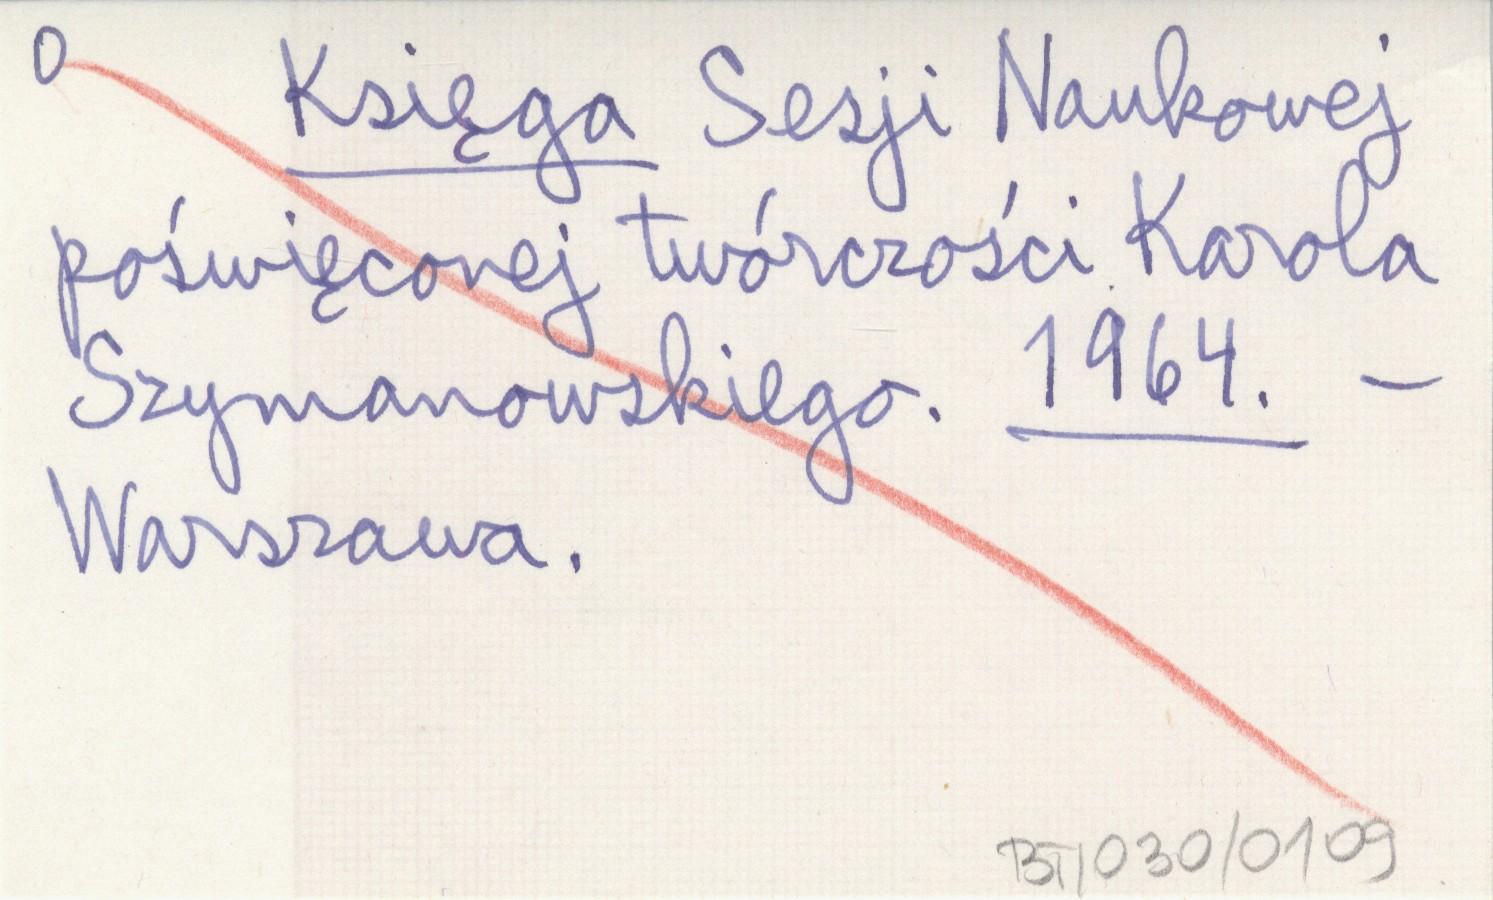 0 Księga Sesji Naukowej
poświęconej twórczości Karola
Szymanowskiego. 1964. —
Warszawa.
BT/030/0109